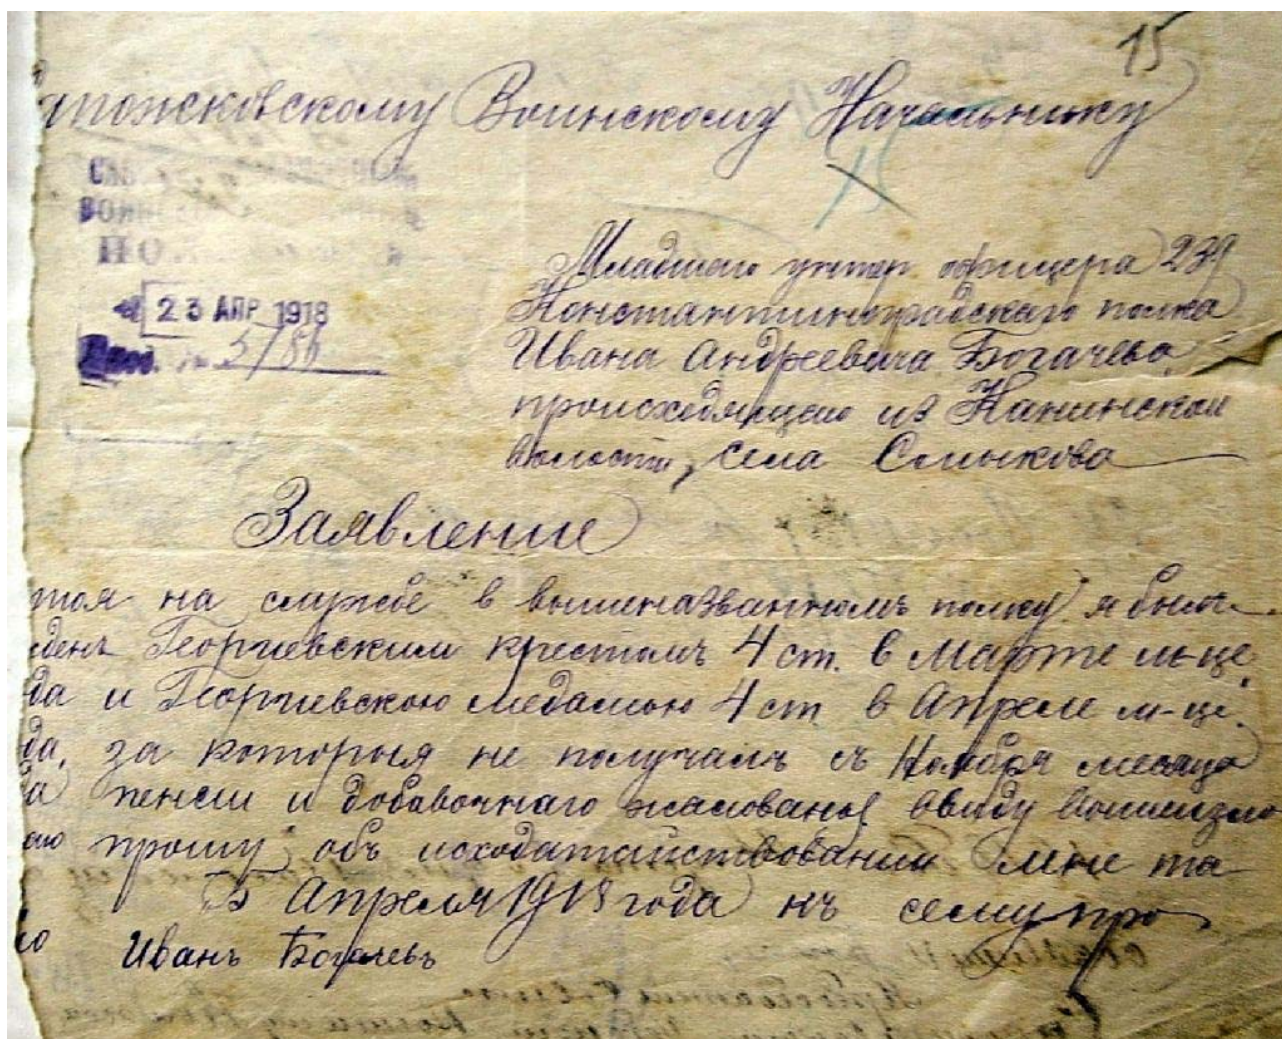 15
апожковскому Воинскому Начальнику
15
ВОИНС
ПО
23 АПР 1918
Вход. № 5786
Младшаго унтер офицера 239
Константиноградскаго полка
Ивана Андреевича Богачева,
происходящаго из Канинской
волости, села Смыкова
Заявление
тоя на службе в вышеназванномъ полку я былъ
денъ Георгиевским крестомъ 4 ст. в Марте м-це
да и Георгиевскою медалью 4 ст в Апреле м-це.
да, за которыя не получалъ съ Ноября месяца
да пенсии и добавочнаго жалованья ввиду вышеизло
аго прошу объ исходатайствовании мне та
Апреля 1918 года къ сему про
Иванъ Богачевъ